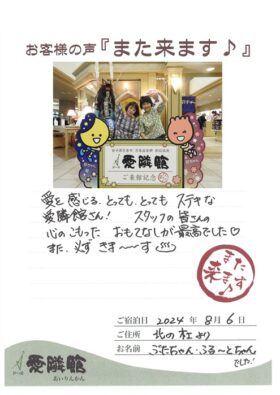 お客様の声『また来ます♪』
愛隣館
ご来館記念
愛を感じる、とっても、とっても ステキな
愛隣館さん! スタッフの皆さんの
心のこもった おもてなしが最高でした♡
また、必ず きま〜〜す
また来ます♪
ご宿泊日 2024年 8月 6日
ご住所 北の杜より
お名前 ぶたちゃん・ふるーとちゃん
でした!
愛隣館
あいりんかん